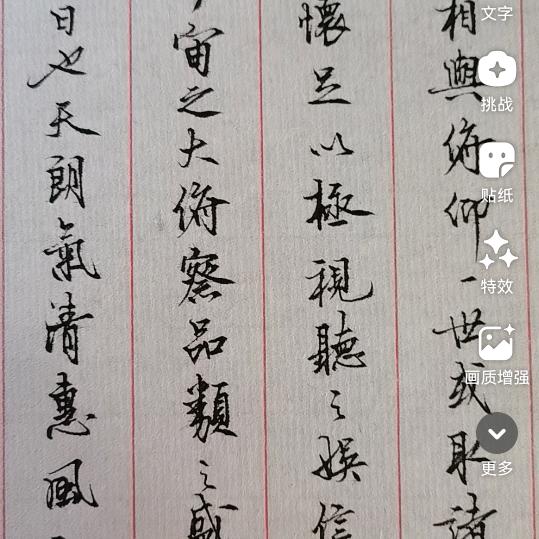 日也天朗氣清惠風
宙之大俯察品類之盛
懷足以極視聽之娛信
相與俯仰一世或取諸
文字
挑战
贴纸
特效
画质增强
更多